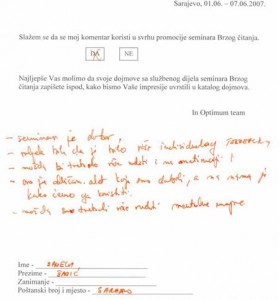 Sarajevo, 01.06. – 07.06.2007.
Slažem se da se moj komentar koristi u svrhu promocije seminara Brzog čitanja.
DA NE
Najljepše Vas molimo da svoje dojmove sa službenog dijela seminara Brzog
čitanja zapišete ispod, kako bismo Vaše impresije uvrstili u katalog dojmova.
In Optimum team
- seminar je dobar,
- da je bilo više individualnog
- možda bi trebalo više raditi i na motivaciji!
- ovo je odličan alat koji smo dobili, a na nama je
kako ćemo ga koristiti.
- možda smo trebali više raditi mentalne mape
Ime -
Prezime -
Poštanski broj i mjesto - SARAJEVO